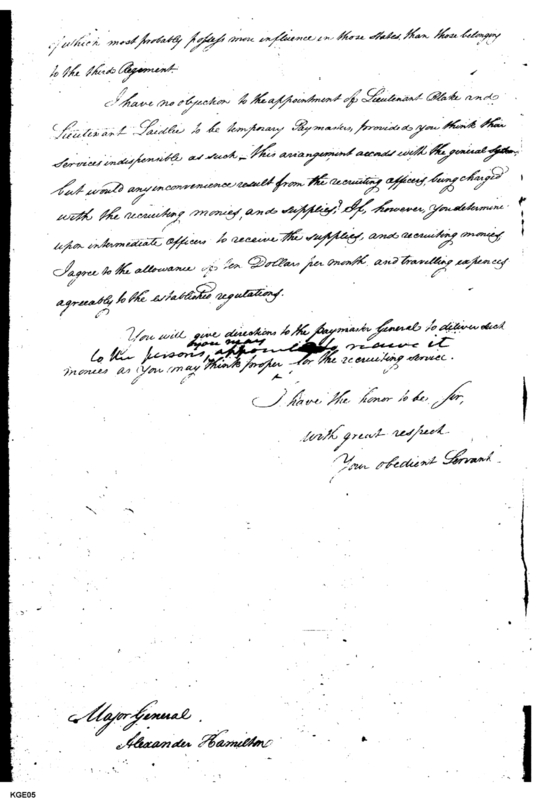 of which most probably possess more influence in those states, than those belonging
to the third Regiment.
I have no objection to the appointment of Lieutenant Blake and
Lieutenant Saidler to be temporary Paymasters, provided you think their
services indispensible as such – this arrangement accords with the general System
but would any inconvenience result from the recruiting officers, being charged
with the recruiting monies, and supplies? If, however, you determine
upon intermediate officers to receive the supplies, and recruiting monies,
I agree to the allowance of ten Dollars per month, and travelling expences
agreeably to the established regulations.
You will give directions to the paymaster General to deliver such
you may
to the persons, appoint to receive it
monies as you may think proper for the recruiting service.
I have the honor to be Sir,
with great respect
Your obedient Servant
Major General
Alexander Hamilton
KGE05